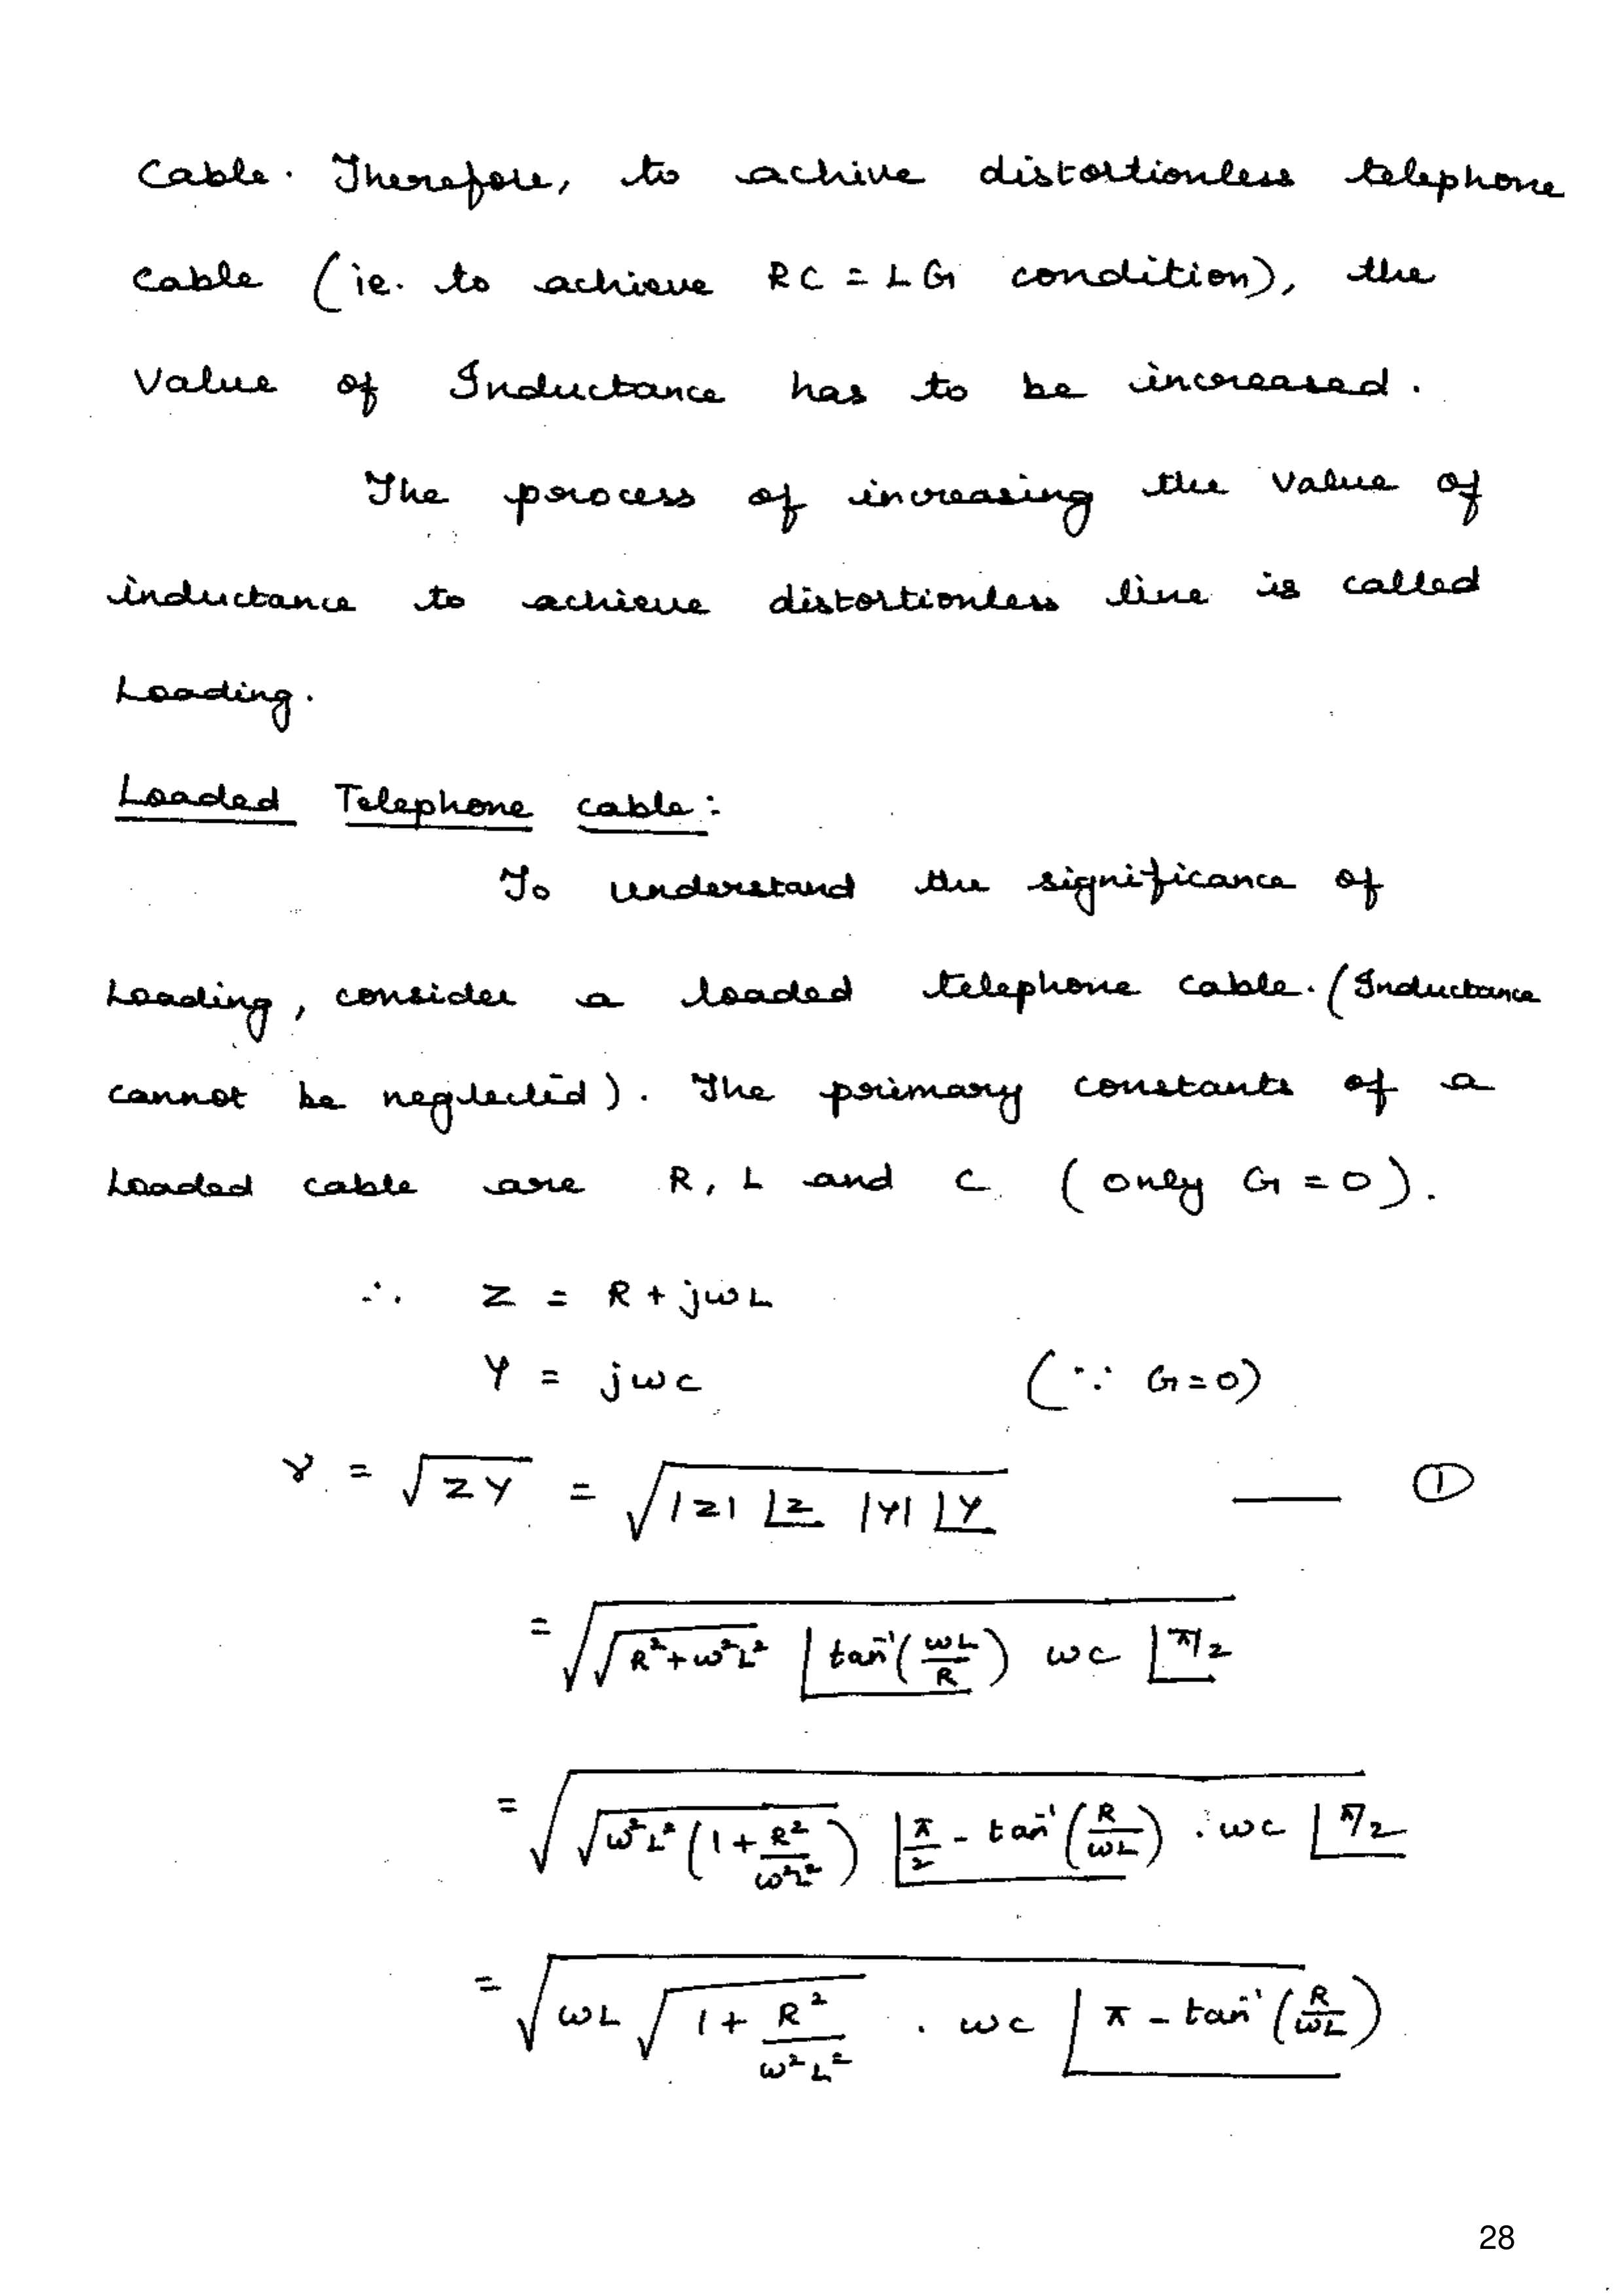 Cable. Therefore, to achive distortionless telephone
cable (ie. to achieve RC = LG condition), the
Value of Inductance has to be increased.
The process of increasing the value of
inductance to achieve distortionless line is called
Loading.
Loaded Telephone cable:
To understand the significance of
Loading, consider a loaded telephone cable. (Inductance
cannot be neglected). The primary constants of a
Loaded cable are R, L and C (only G = 0).
∴ Z = R + jωL
Y = jωc (∵ G = 0)
γ = √(ZY) = √(|Z| ∠Z |Y| ∠Y) —— ①
= √(√(R²+ω²L²) ∠tan⁻¹(ωL/R) ωc ∠π/2)
= √(√(ω²L²(1 + R²/ω²L²)) ∠π/2 - tan⁻¹(R/ωL) . ωc ∠π/2)
= √(ωL √(1 + R²/ω²L²) . ωc ∠π - tan⁻¹(R/ωL))
28